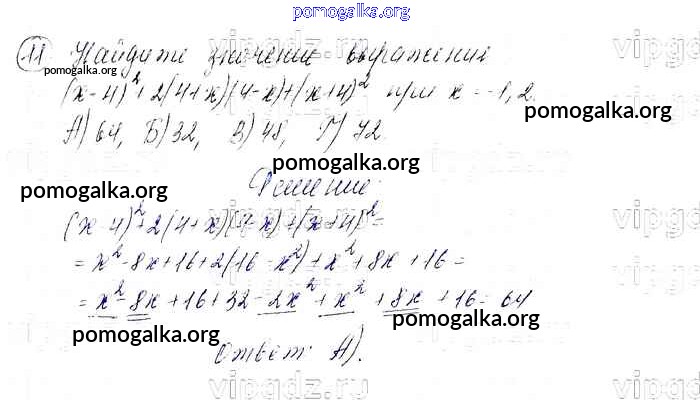 pomogalka.org
11 Найдите значение выражения
pomogalka.org
(x-4)² + 2(4+x)(4-x)+(x+4)² при x = -1,2.
pomogalka.org
А) 64, Б) 32, В) 48, Г) 72.
pomogalka.org
pomogalka.org
Решение:
(x-4)²+2(4+x)(4-x)+(x+4)²=
= x²-8x+16+2(16-x²)+x²+8x+16=
= x²-8x+16+32-2x²+x²+8x+16=64
pomogalka.org
pomogalka.org
Ответ: А).
vipgdz.ru